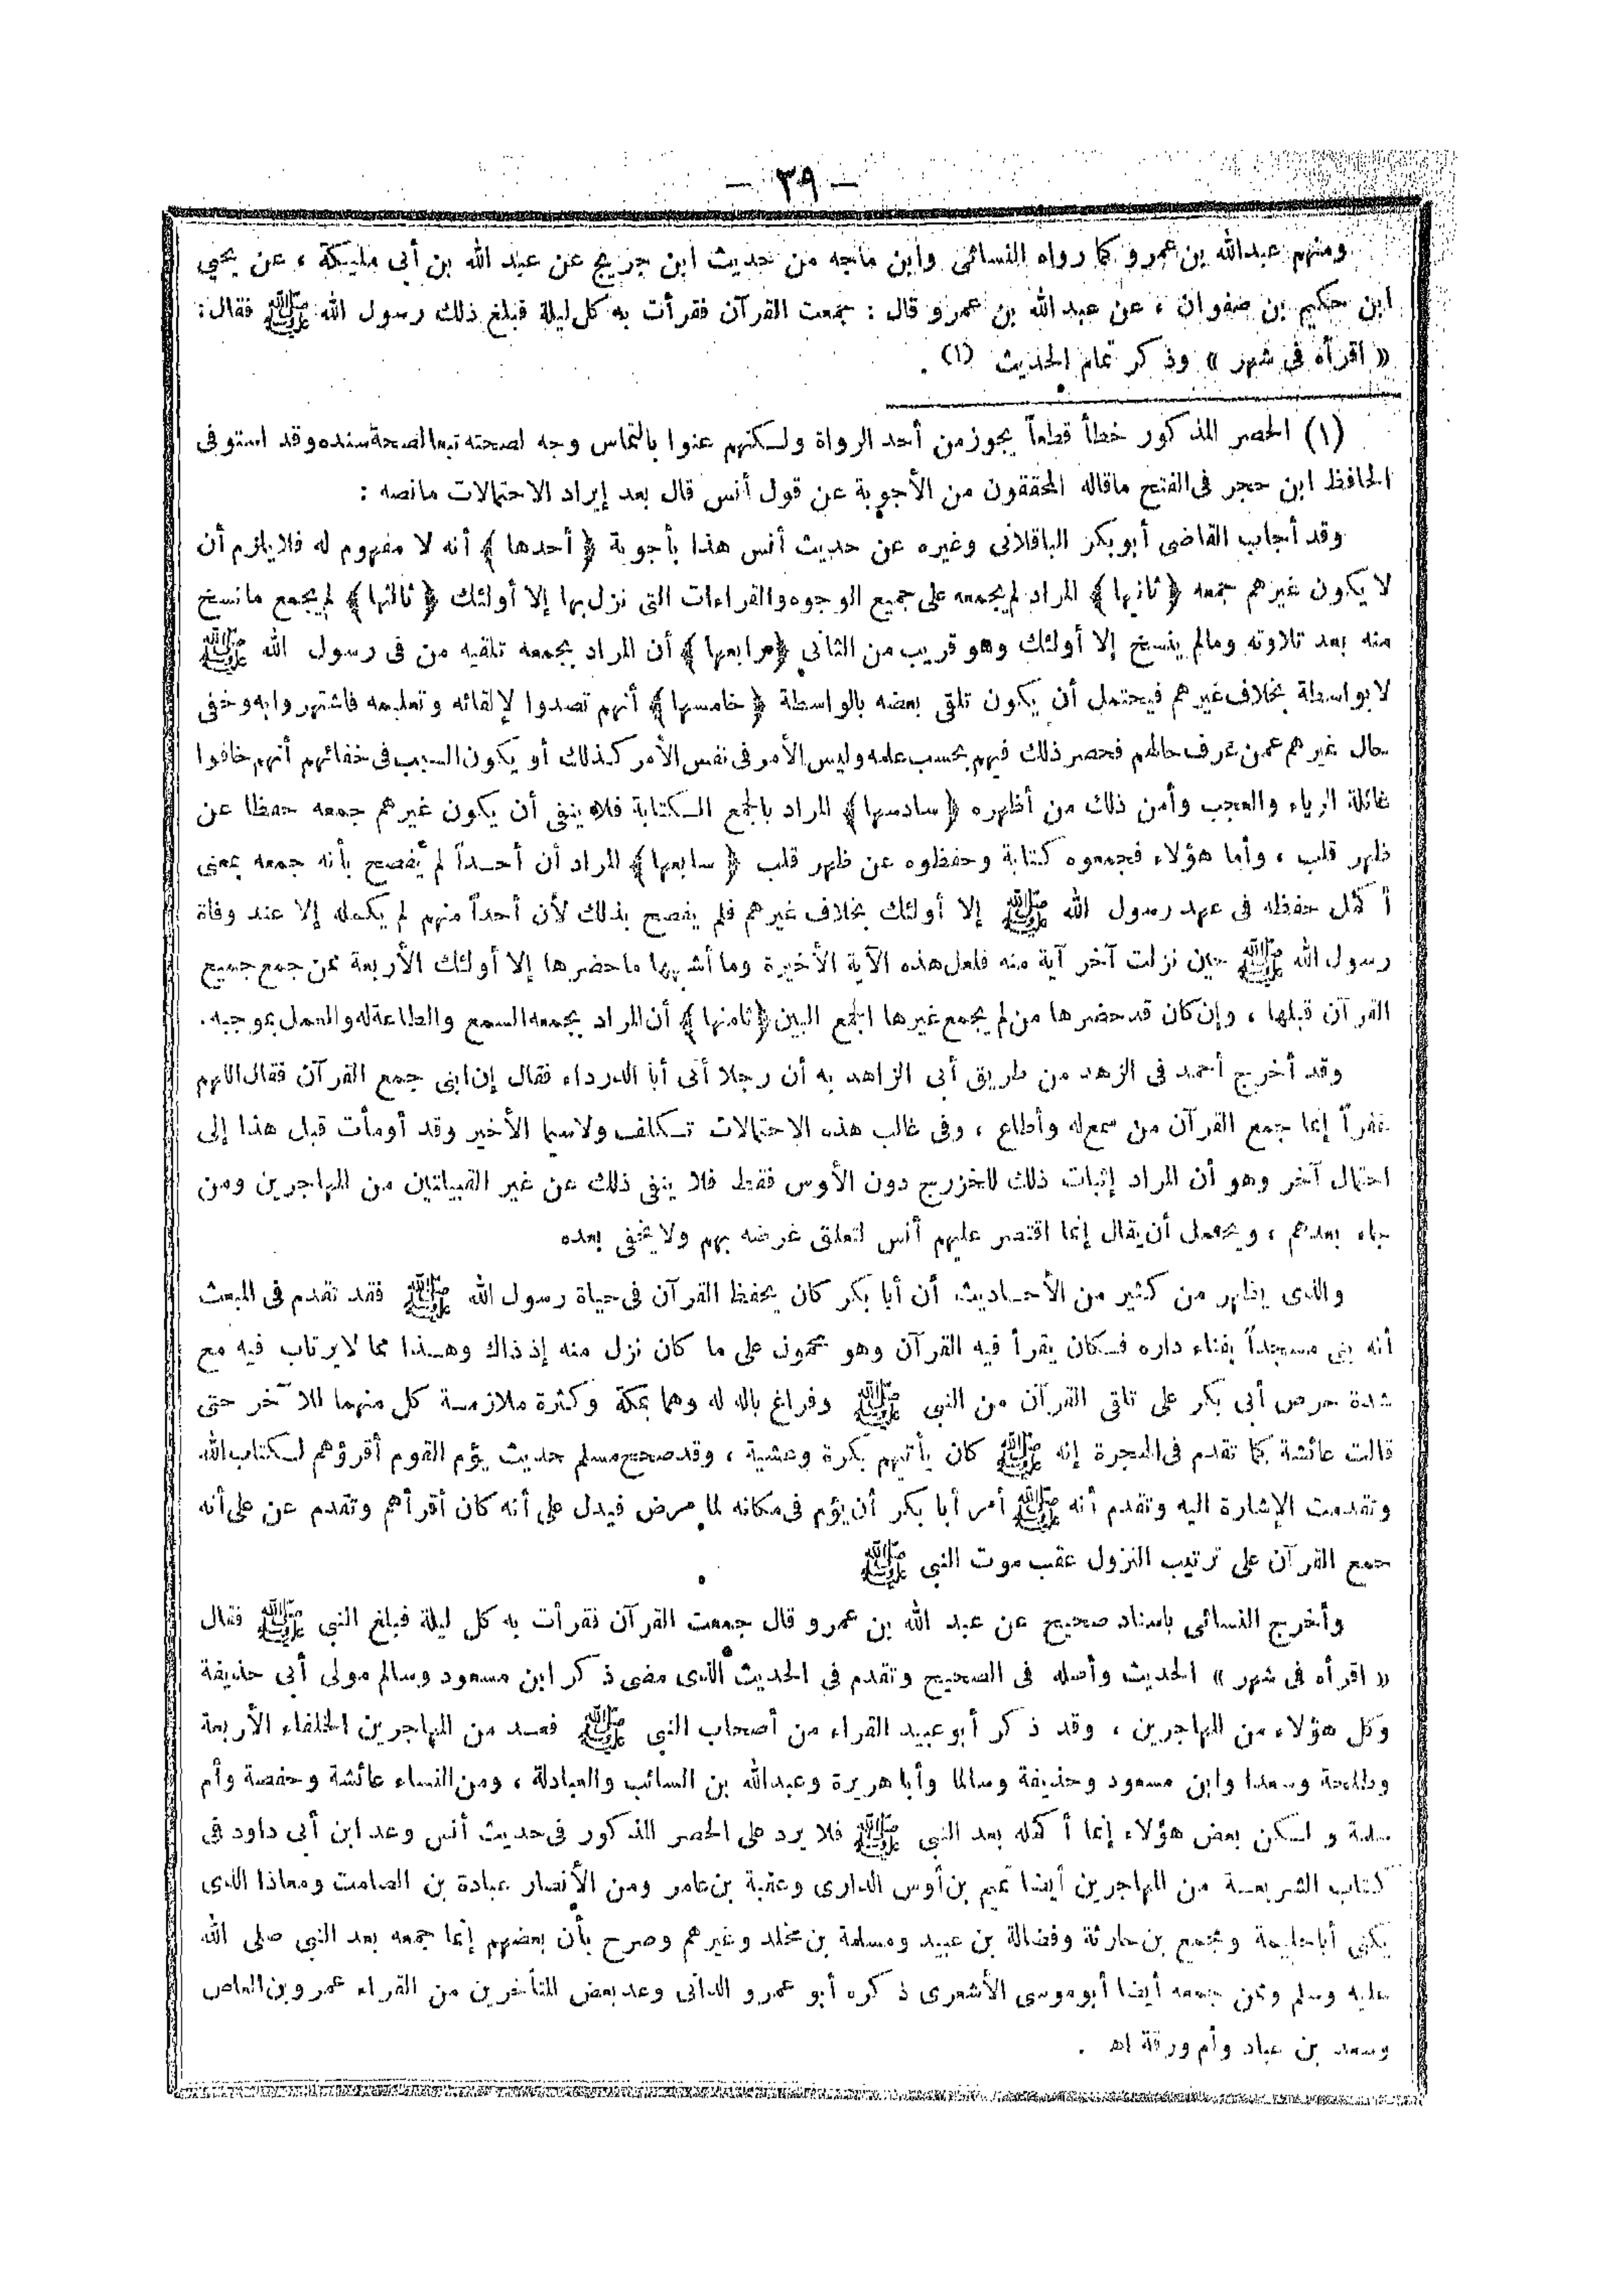 — ٣٩ —
ومنهم عبدالله بن عمرو كما رواه النسائى وابن ماجه من حديث ابن جريج عن عبد الله بن أبى مليكة ، عن يحيي
ابن حكيم بن صفوان ، عن عبد الله بن عمرو قال : جمعت القرآن فقرأت به كل ليلة فبلغ ذلك رسول الله ﷺ فقال :
« اقرأه فى شهر » وذكر تمام الحديث (١) .
(١) الحصر المذكور خطأ قطعاً يجوز من أحد الرواة ولكنهم عنوا بالتماس وجه لصحته تبعا لصحة سنده وقد استوفى
الحافظ ابن حجر فى الفتح ماقاله المحققون من الأجوبة عن قول أنس قال بعد إيراد الاحتمالات مانصه :
وقد أجاب القاضى أبو بكر الباقلانى وغيره عن حديث أنس هذا بأجوبة ﴿ أحدها ﴾ أنه لا مفهوم له فلا يلزم أن
لا يكون غيرهم جمعه ﴿ ثانيها ﴾ المراد لم يجمعه على جميع الوجوه والقراءات التى نزل بها إلا أولئك ﴿ ثالثها ﴾ لم يجمع مانسخ
منه بعد تلاوته ومالم ينسخ إلا أولئك وهو قريب من الثانى ﴿ رابعها ﴾ أن المراد بجمعه تلقيه من فى رسول الله ﷺ
لا بواسطة بخلاف غيرهم فيحتمل أن يكون تلقى بعضه بالواسطة ﴿ خامسها ﴾ أنهم تصدوا لإلقائه وتعليمه فاشتهروا به وخفى
حال غيرهم عمن عرف حالهم فحصر ذلك فيهم بحسب علمه وليس الأمر فى نفس الأمر كذلك أو يكون السبب فى خفائهم أنهم خافوا
غائلة الرياء والعجب وأمن ذلك من أظهره ﴿ سادسها ﴾ المراد بالجمع الكتابة فلا ينفى أن يكون غيرهم جمعه حفظا عن
ظهر قلب ، وأما هؤلاء فجمعوه كتابة وحفظوه عن ظهر قلب ﴿ سابعها ﴾ المراد أن أحداً لم يُفصح بأنه جمعه بمعنى
أكمل حفظه فى عهد رسول الله ﷺ إلا أولئك بخلاف غيرهم فلم يفصح بذلك لأن أحداً منهم لم يكمله إلا عند وفاة
رسول الله ﷺ حين نزلت آخر آية منه فلعل هذه الآية الأخيرة وما أشبهها ماحضرها إلا أولئك الأربعة ممن جمع جميع
القرآن قبلها ، وإن كان قد حضرها من لم يجمع غيرها الجمع البين ﴿ ثامنها ﴾ أن المراد بجمعه السمع والطاعة له والعمل بموجبه .
وقد أخرج أحمد فى الزهد من طريق أبى الزاهد به أن رجلا أتى أبا الدرداء فقال إن ابنى جمع القرآن فقال اللهم
غفراً إنما جمع القرآن من سمع له وأطاع ، وفى غالب هذه الاحتمالات تكلف ولاسيما الأخير وقد أومأت قبل هذا إلى
احتمال آخر وهو أن المراد إثبات ذلك للخزرج دون الأوس فقط فلا ينفى ذلك عن غير القبيلتين من المهاجرين ومن
جاء بعدهم ، ويحتمل أن يقال إنما اقتصر عليهم أنس لتعلق غرضه بهم ولا يخفى بعده
والذى يظهر من كثير من الأحاديث أن أبا بكر كان يحفظ القرآن فى حياة رسول الله ﷺ فقد تقدم فى المبعث
أنه بنى مسجداً بفناء داره فكان يقرأ فيه القرآن وهو محمول على ما كان نزل منه إذ ذاك وهذا مما لا يرتاب فيه مع
شدة حرص أبى بكر على تلقى القرآن من النبى ﷺ وفراغ باله له وهما بمكة وكثرة ملازمة كل منهما للآخر حتى
قالت عائشة كما تقدم فى الهجرة إنه ﷺ كان يأتيهم بكرة وعشية ، وقد صحح مسلم حديث يؤم القوم أقرؤهم لكتاب الله
وتقدمت الإشارة اليه وتقدم أنه ﷺ أمر أبا بكر أن يؤم فى مكانه لما مرض فيدل على أنه كان أقرأهم وتقدم عن على أنه
جمع القرآن على ترتيب النزول عقب موت النبى ﷺ
وأخرج النسائى باسناد صحيح عن عبد الله بن عمرو قال جمعت القرآن فقرأت به كل ليلة فبلغ النبى ﷺ فقال
« اقرأه فى شهر » الحديث وأصله فى الصحيح وتقدم فى الحديث الذى مضى ذكر ابن مسعود وسالم مولى أبى حذيفة
وكل هؤلاء من المهاجرين ، وقد ذكر أبو عبيد القراء من أصحاب النبى ﷺ فعد من المهاجرين الخلفاء الأربعة
وطلحة وسعدا وابن مسعود وحذيفة وسالما وأبا هريرة وعبدالله بن السائب والعبادلة ، ومن النساء عائشة وحفصة وأم
سلمة ولكن بعض هؤلاء إنما أكمله بعد النبى ﷺ فلا يرد على الحصر المذكور فى حديث أنس وعد ابن أبى داود فى
كتاب الشريعة من المهاجرين أيضا تميم بن أوس الدارى وعقبة بن عامر ومن الأنصار عبادة بن الصامت ومعاذا الذى
يكنى أبا حليمة ومجمع بن حارثة وفضالة بن عبيد ومسلمة بن مخلد وغيرهم وصرح بأن بعضهم إنما جمعه بعد النبى صلى الله
عليه وسلم وممن جمعه أيضا أبو موسى الأشعرى ذكره أبو عمرو الدانى وعد بعض المتأخرين من القراء عمرو بن العاص
وسعد بن عباد وأم ورقة اهـ .